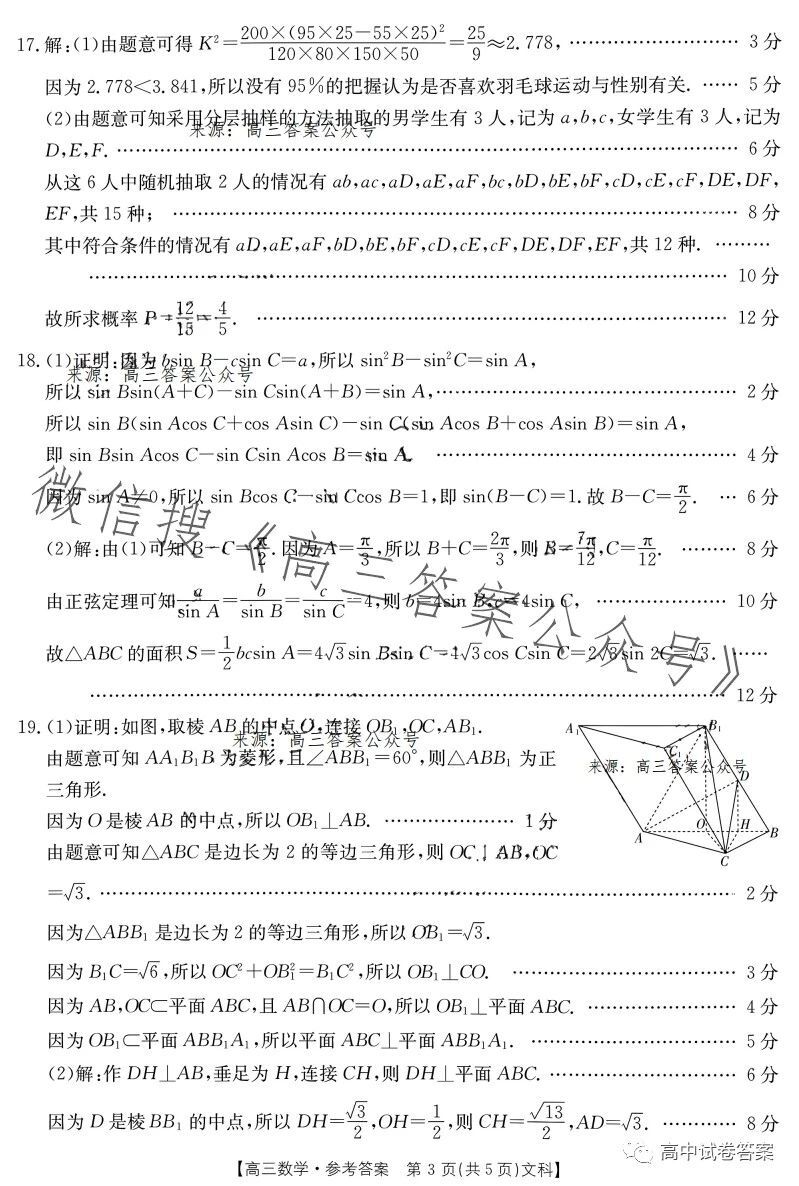 17.解:(1)由题意可得 K²=200×(95×25-55×25)²/120×80×150×50=25/9≈2.778, …… 3分
因为 2.778<3.841,所以没有 95%的把握认为是否喜欢羽毛球运动与性别有关. …… 5分
(2)由题意可知采用分层抽样的方法抽取的男学生有 3 人,记为 a,b,c,女学生有 3 人,记为
来源: 高三答案公众号
D,E,F. …… 6分
从这 6 人中随机抽取 2 人的情况有 ab,ac,aD,aE,aF,bc,bD,bE,bF,cD,cE,cF,DE,DF,
EF,共 15 种; …… 8分
其中符合条件的情况有 aD,aE,aF,bD,bE,bF,cD,cE,cF,DE,DF,EF,共 12 种. ……
…… 10分
故所求概率 P=12/15=4/5. …… 12分
18.(1)证明:因为 bsin B-csin C=a,所以 sin²B-sin²C=sin A,
来源: 高三答案公众号
所以 sin Bsin(A+C)-sin Csin(A+B)=sin A, …… 2分
所以 sin B(sin Acos C+cos Asin C)-sin C(sin Acos B+cos Asin B)=sin A,
即 sin Bsin Acos C-sin Csin Acos B=sin A. …… 4分
因为 sin A≠0,所以 sin Bcos C-sin Ccos B=1,即 sin(B-C)=1.故 B-C=π/2. … 6分
(2)解:由(1)可知 B-C=π/2.因为 A=π/3,所以 B+C=2π/3,则 B=7π/12,C=π/12. …… 8分
由正弦定理可知 a/sin A=b/sin B=c/sin C=4,则 b=4sin B,c=4sin C, …… 10分
故△ABC 的面积 S=1/2bcsin A=4√3sin Bsin C=4√3cos Csin C=2√3sin 2C=√3. ……
…… 12分
微信搜《高三答案公众号》
19.(1)证明:如图,取棱 AB 的中点 O,连接 OB₁,OC,AB₁.
来源: 高三答案公众号
由题意可知 AA₁B₁B 为菱形,且∠ABB₁=60°,则△ABB₁ 为正
三角形.
因为 O 是棱 AB 的中点,所以 OB₁⊥AB. …… 1分
由题意可知△ABC 是边长为 2 的等边三角形,则 OC⊥AB,OC
=√3. …… 2分
A₁
B₁
C₁
来源: 高三答案公众号
D
A
O
H
B
C
因为△ABB₁ 是边长为 2 的等边三角形,所以 OB₁=√3.
因为 B₁C=√6,所以 OC²+OB₁²=B₁C²,所以 OB₁⊥CO. …… 3分
因为 AB,OC⊂平面 ABC,且 AB∩OC=O,所以 OB₁⊥平面 ABC. …… 4分
因为 OB₁⊂平面 ABB₁A₁,所以平面 ABC⊥平面 ABB₁A₁. …… 5分
(2)解:作 DH⊥AB,垂足为 H,连接 CH,则 DH⊥平面 ABC. …… 6分
因为 D 是棱 BB₁ 的中点,所以 DH=√3/2,OH=1/2,则 CH=√13/2,AD=√3. …… 8分
高中试卷答案
【高三数学·参考答案 第 3 页(共 5 页)文科】